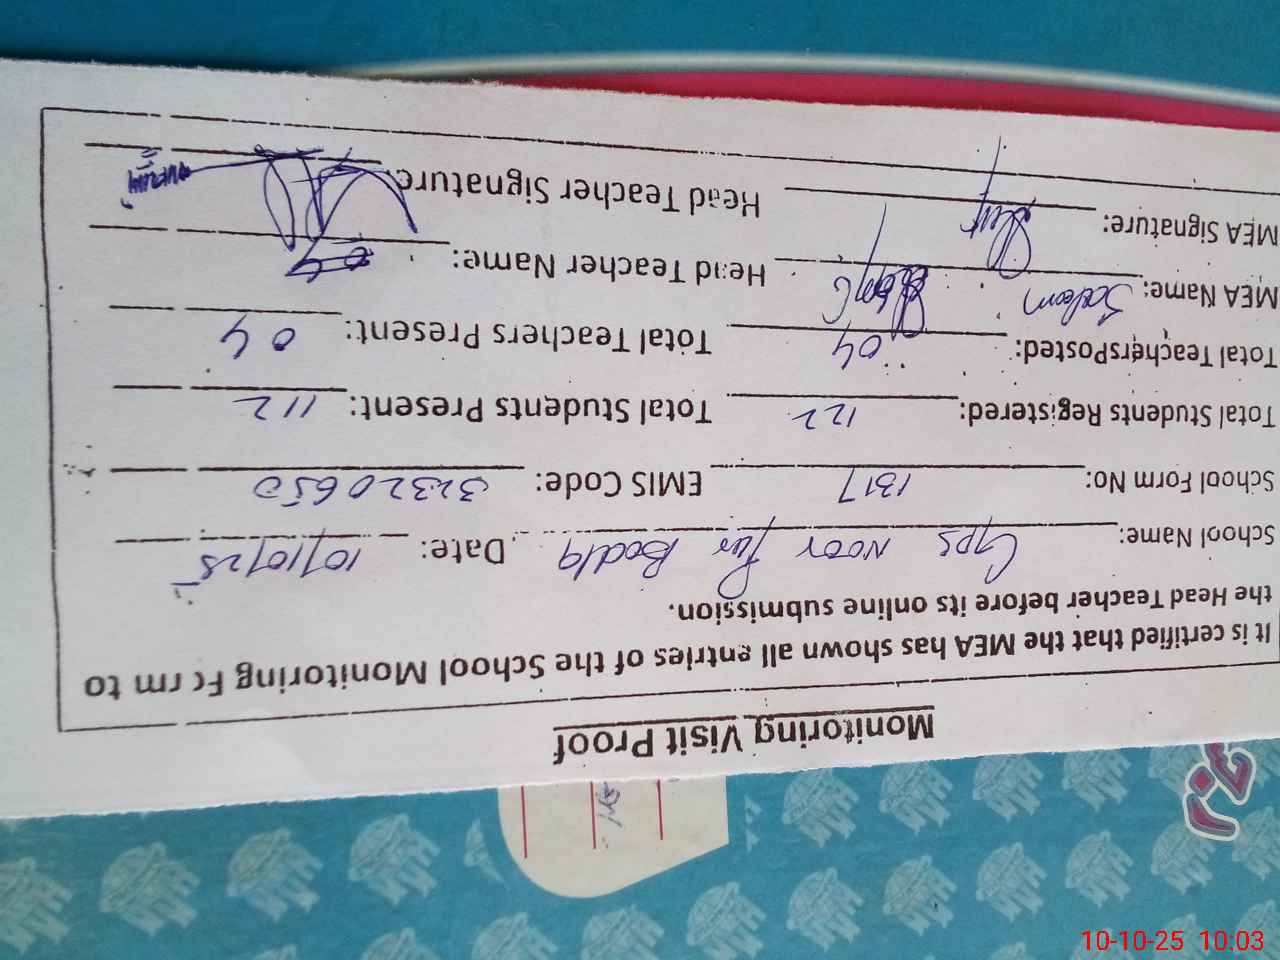 Monitoring Visit Proof
It is certified that the MEA has shown all entries of the School Monitoring Form to
the Head Teacher before its online submission.
School Name: GPS NOOR Pur Bodla Date: 10/10/25
School Form No: 1317 EMIS Code: 32320650
Total Students Registered: 122 Total Students Present: 112
Total TeachersPosted: 04 Total Teachers Present: 04
MEA Name: Saleem Head Teacher Name:
MEA Signature: Head Teacher Signature:
10-10-25 10:03